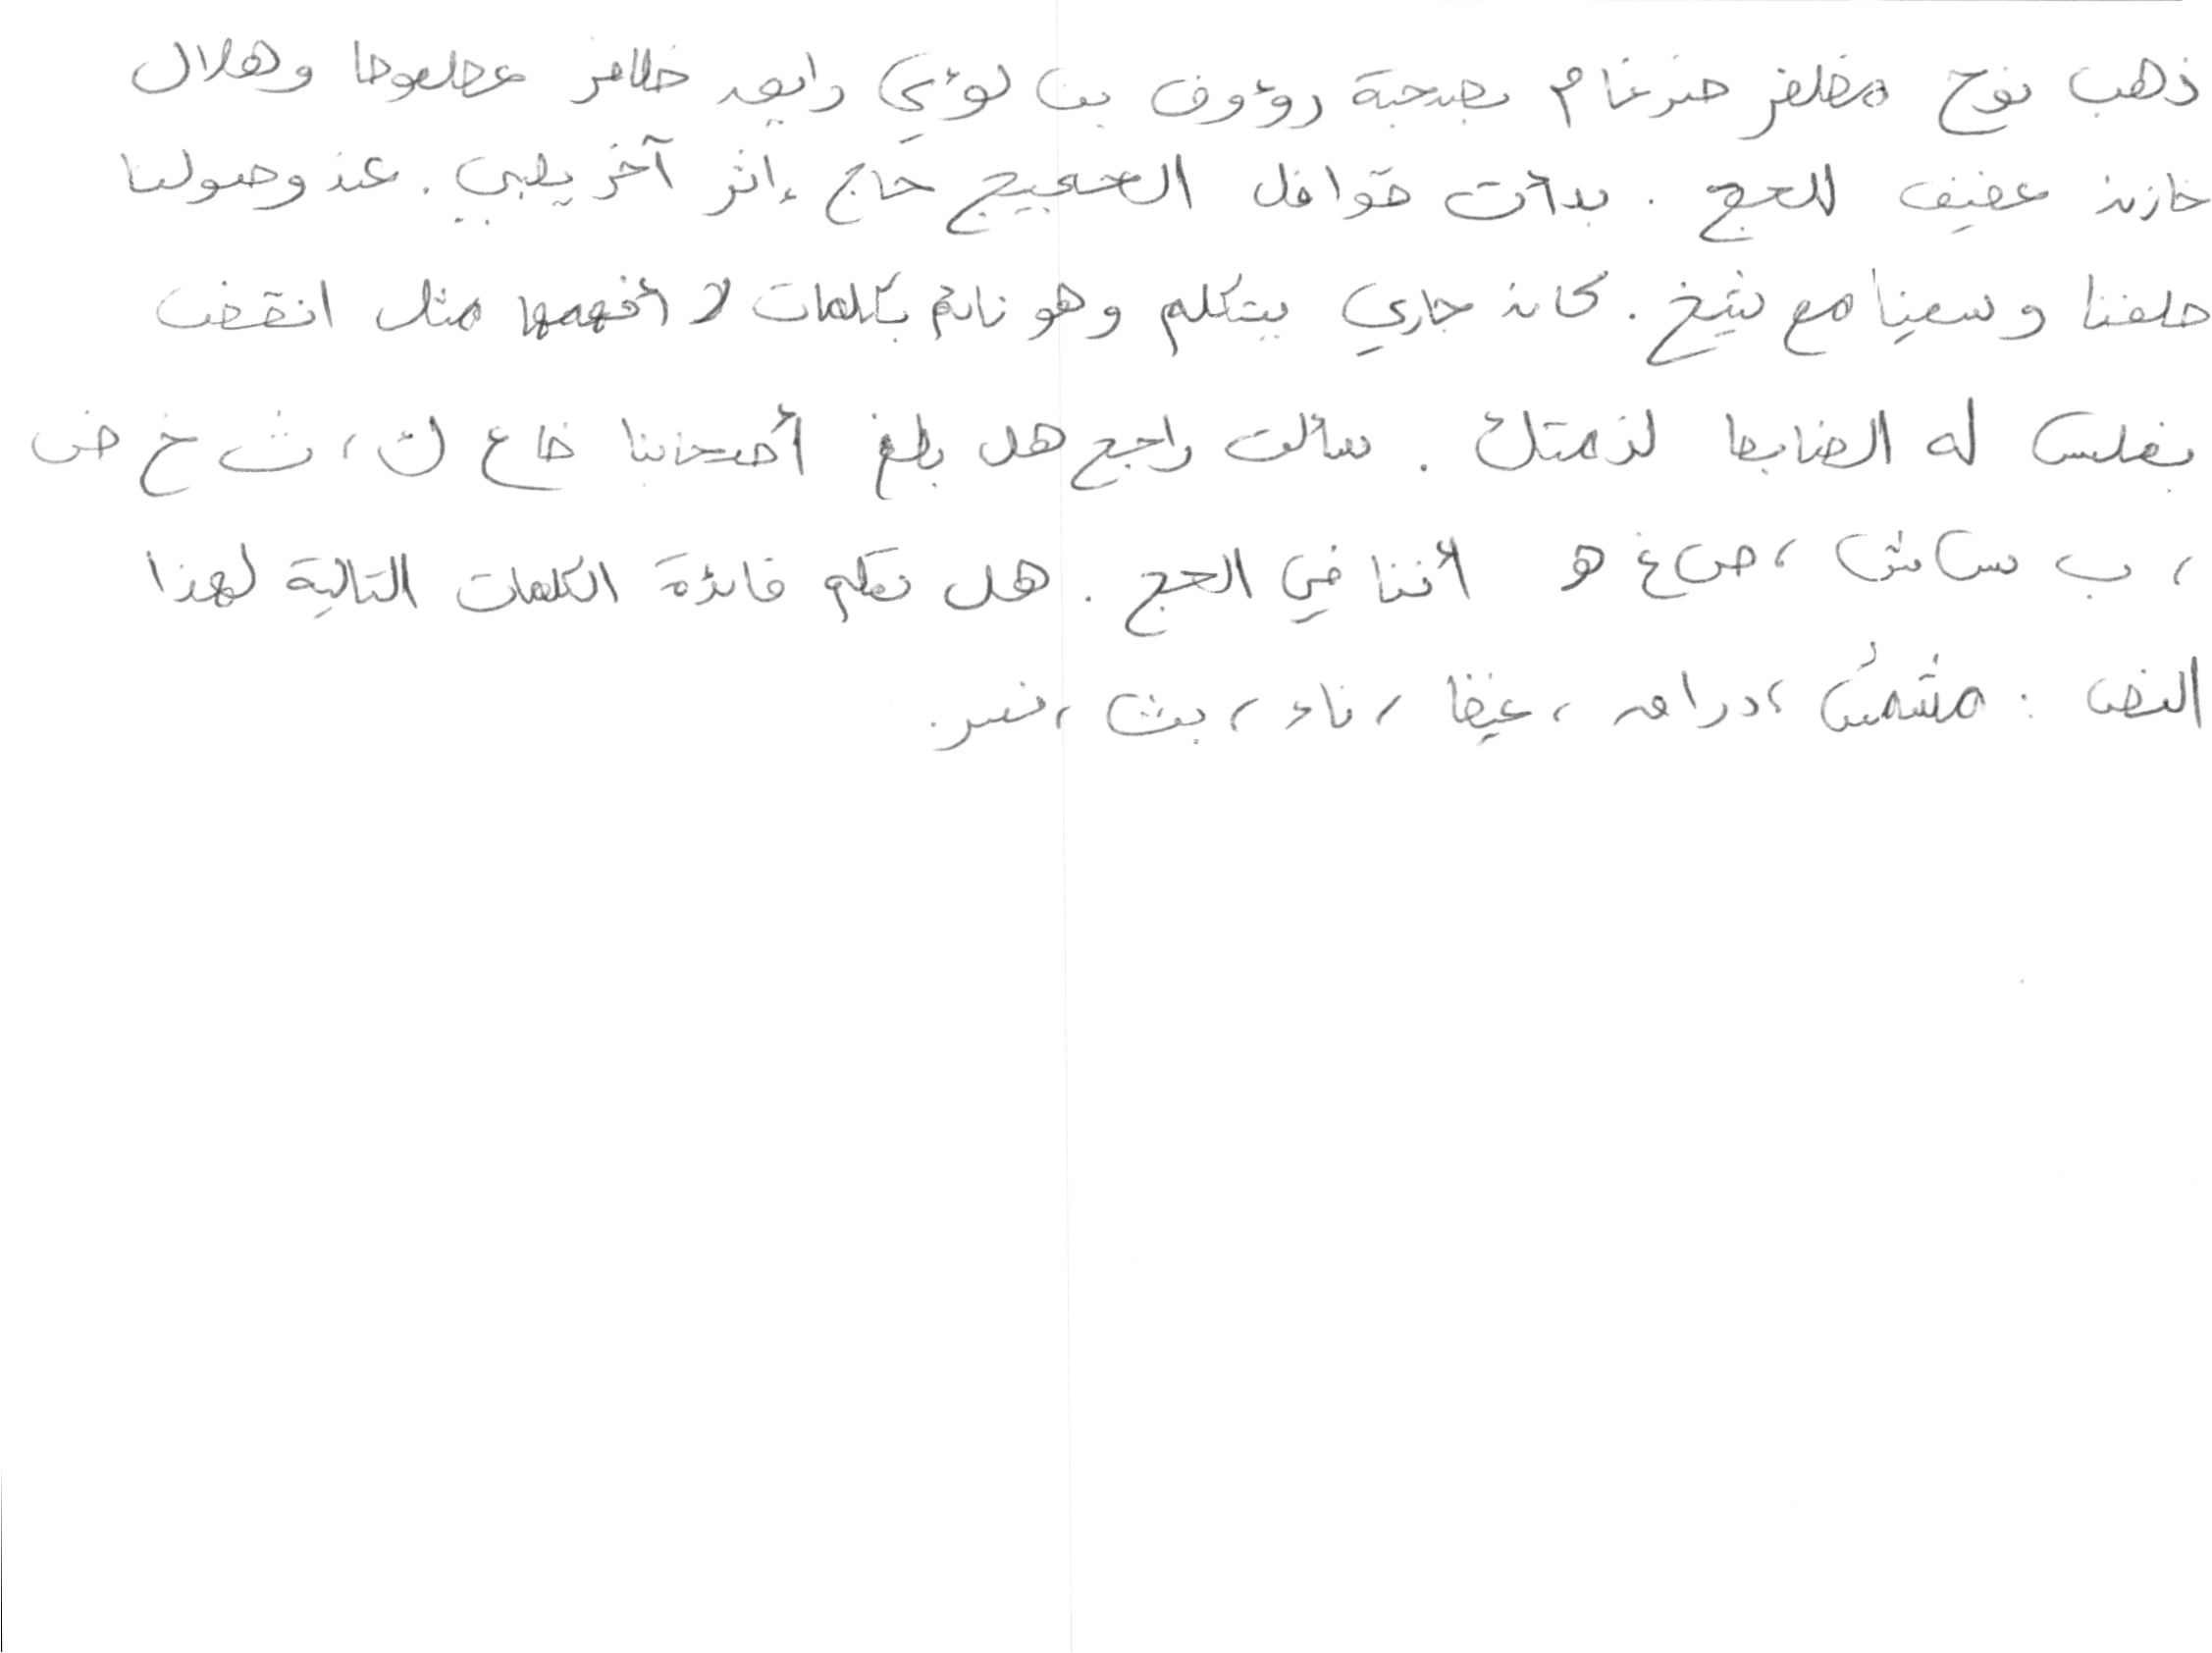 ذهب نوح مظفر ضرغام بصحبة رؤوف بن لؤي رايعد ظافر عطعوط وهلال
خازن عفيف للحج . بدأت قوافل الحجيج حاج إثر آخر يلبي . عند وصولنا
طفنا وسعينا مع شيخ . كان جاري يتكلم وهو نائم بكلمات لا أفهمها مثل انقض
بغلس له الضابط لذمتك . سألت راجح هل بلغ أصحابنا ظاع ك ، ث خ ض
، ب س ش ، ص غ هو أننا في الحج . هل تعلم فائدة الكلمات التالية لهذا
النص : مشمش ، درامه ، غيظ ، ناء ، بث ، نسر .